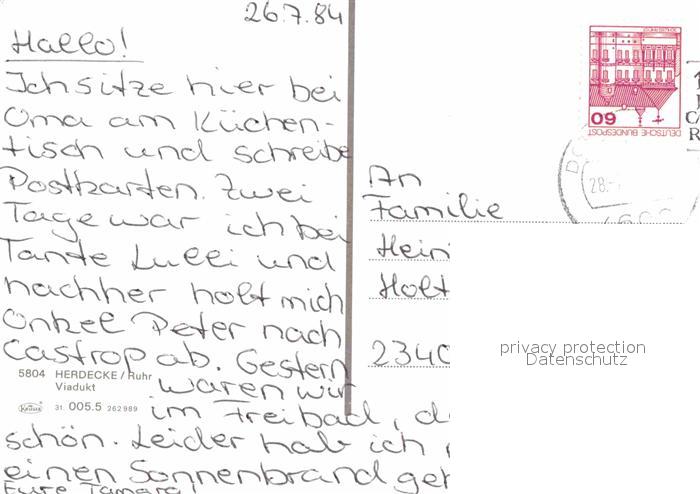 26.7.84
Hallo!
Ich sitze hier bei
Oma am Küchen-
tisch und schreibe
Postkarten. Zwei
Tage war ich bei
Tante Lulli und
nachher holt mich
Onkel Peter nach
Castrop ab. Gestern
waren wir
im Freibad, d
schön. Leider hab ich
einen Sonnenbrand ge
Eure Tamara!
5804 HERDECKE / Ruhr
Viadukt
Krüger
31. 005.5 262989
An
Familie
Hein
Holt
2340
60
DEUTSCHE BUNDESPOST
28.
privacy protection
Datenschutz